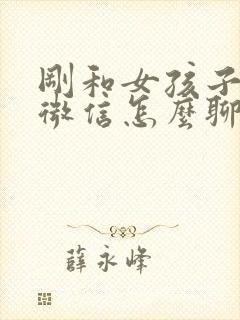 剛和女孩子
微信怎麼聊
薛永峰